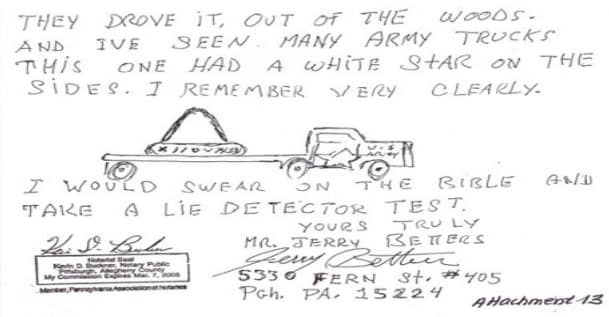 THEY DROVE iT, OUT OF THE WOODS.
AND IVE SEEN MANY ARMY TRUCKS
THIS ONE HAD A WHITE STAR ON THE
SIDES. I REMEMBER VERY CLEARLY.
U.S
ARMY
I WOULD SWEAR ON THE BIBLE AND
TAKE A LIE DETECTOR TEST.
YOURS TRULY
MR. JERRY BETTERS
Jerry Betters
5330 FERN St. #405
Pgh. PA. 15224
Attachment 13
Notarial Seal
Kevin D. Buckner, Notary Public
Pittsburgh, Allegheny County
My Commission Expires Mar. 7, 2005
Member, Pennsylvania Association of Notaries